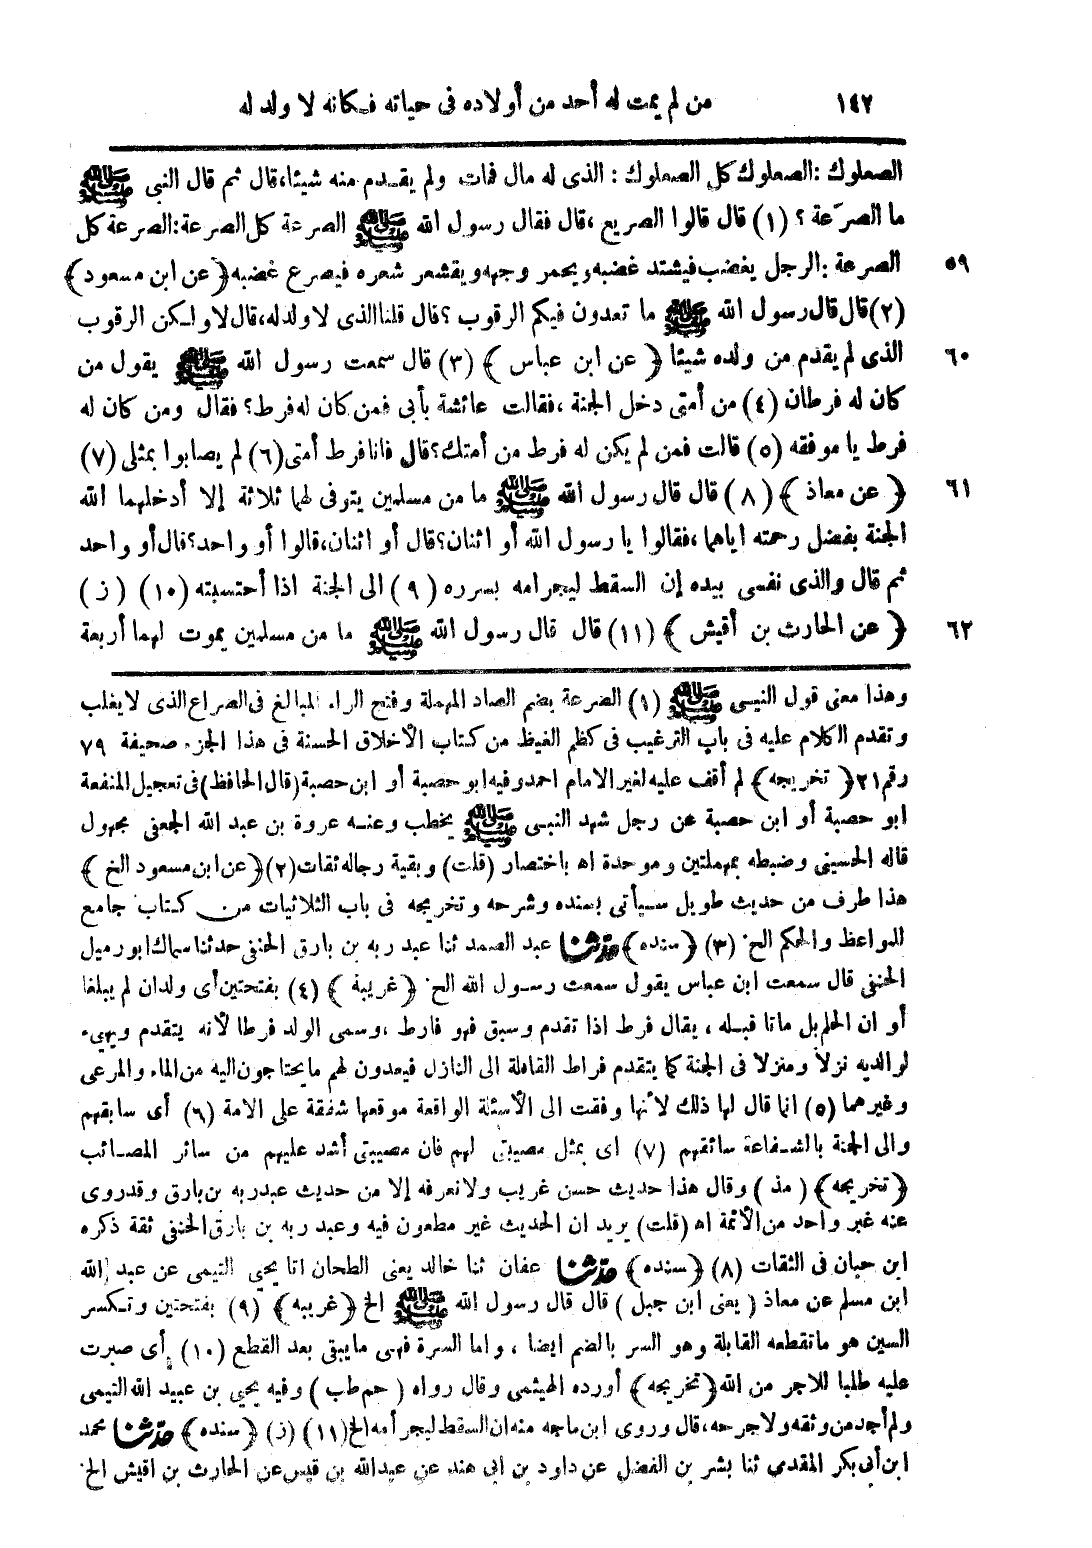 ١٤٧ من لم يمت له أحد من أولاده فى حياته فكانه لا ولد له
الصعلوك :الصعلوك كل الصعلوك : الذى له مال فمات ولم يقدم منه شيئا،قال ثم قال النبى ﷺ
ما الصرّعة ؟ (١) قال قالوا الصريع ،قال فقال رسول الله ﷺ الصرعة كل الصرعة:الصرعة كل
٥٩ الصرعة :الرجل يغضب فيشتد غضبه ويحمر وجهه ويقشعر شعره فيصرع غضبه ﴿ عن ابن مسعود ﴾
(٢) قال قال رسول الله ﷺ ما تعدون فيكم الرقوب ؟قال قلنا الذى لا ولد له،قال لا ولكن الرقوب
٦٠ الذى لم يقدم من ولده شيئا ﴿ عن ابن عباس ﴾ (٣) قال سمعت رسول الله ﷺ يقول من
كان له فرطان (٤) من أمتى دخل الجنة ،فقالت عائشة بأبى فمن كان له فرط؟ فقال ومن كان له
فرط يا موفقه (٥) قالت فمن لم يكن له فرط من أمتك؟قال فانا فرط أمتى(٦) لم يصابوا بمثلى (٧)
٦١ ﴿ عن معاذ ﴾ (٨) قال قال رسول الله ﷺ ما من مسلمين يتوفى لهما ثلاثة إلا أدخلهما الله
الجنة بفضل رحمته اياهما ،فقالوا يا رسول الله أو اثنان؟قال أو اثنان،قالوا أو واحد؟قال أو واحد
ثم قال والذى نفسى بيده إن السقط ليجر امه بسرره (٩) الى الجنة اذا أحتسبته (١٠) (ز)
٦٢ ﴿ عن الحارث بن أقيش ﴾ (١١) قال قال رسول الله ﷺ ما من مسلمين يموت لهما أربعة
وهذا معنى قول النبى ﷺ (١) الصرعة بضم الصاد المهملة وفتح الراء المبالغ فى الصراع الذى لا يغلب
وتقدم الكلام عليه فى باب الترغيب فى كظم الغيظ من كتاب الأخلاق الحسنة فى هذا الجزء صحيفة ٧٩
رقم ٢١ ﴿ تخريجه ﴾ لم أقف عليه لغير الامام احمد وفيه ابو حصبة أو ابن حصبة (قال الحافظ) فى تعجيل المنفعة
ابو حصبة أو ابن حصبة عن رجل شهد النبى ﷺ يخطب وعنه عروة بن عبد الله الجعفى مجهول
قاله الحسينى وضبطه بمهملتين وموحدة اه باختصار (قلت) وبقية رجاله ثقات (٢) ﴿ عن ابن مسعود الخ ﴾
هذا طرف من حديث طويل سيأتى بسنده وشرحه وتخريجه فى باب الثلاثيات من كتاب جامع
المواعظ والحكم الخ (٣) ﴿ سنده ﴾ حدثنا عبد الصمد ثنا عبد ربه بن بارق الحنفى حدثنا سماك ابو رميل
الحنفى قال سمعت ابن عباس يقول سمعت رسول الله الخ ﴿ غريبة ﴾ (٤) بفتحتين أى ولدان لم يبلغا
أو ان الحلم بل ماتا قبله ، يقال فرط اذا تقدم وسبق فهو فارط ،وسمى الولد فرطا لأنه يتقدم ويهيء
لوالديه نزلا ومنزلا فى الجنة كما يتقدم فراط القافلة الى النازل فيعدون لهم ما يحتاجون اليه من الماء والمرعى
وغيرهما (٥) انما قال لها ذلك لأنها وفقت الى الأسئلة الواقعة موقعها شفقة على الامة (٦) أى سابقهم
والى الجنة بالشفاعة سائقهم (٧) اى بمثل مصيبتى لهم فان مصيبتى أشد عليهم من سائر المصائب
﴿ تخريجه ﴾ (مذ) وقال هذا حديث حسن غريب ولا نعرفه إلا من حديث عبد ربه بن بارق وقد روى
عنه غير واحد من الأئمة اه (قلت) يريد ان الحديث غير مطعون فيه وعبد ربه بن بارق الحنفى ثقة ذكره
ابن حبان فى الثقات (٨) ﴿ سنده ﴾ حدثنا عفان ثنا خالد يعنى الطحان انا يحي التيمى عن عبد الله
ابن مسلم عن معاذ (يعنى ابن جبل) قال قال رسول الله ﷺ الخ ﴿ غريبه ﴾ (٩) بفتحتين وتكسر
السين هو ما تقطعه القابلة وهو السر بالضم ايضا ، واما السرة فهى ما يبقى بعد القطع (١٠) أى صبرت
عليه طلبا للاجر من الله ﴿ تخريجه ﴾ أورده الهيثمى وقال رواه (حم طب) وفيه يحي بن عبيد الله التيمى
ولم أجد من وثقه ولا جرحه،قال وروى ابن ماجه منه ان السقط ليجر أمه الخ (١١) (ز) ﴿ سنده ﴾ حدثنا محمد
ابن أبى بكر المقدمى ثنا بشر بن المفضل عن داود بن ابى هند عن عبد الله بن قيس عن الحارث بن اقيش الخ